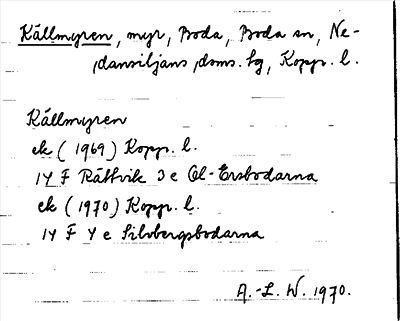 Källmyren, myr, Boda, Boda sn, Ne-
dansiljans doms. hg, Kopp. l.
Källmyren
ek (1969) Kopp. l.
14 F Rättvik 3 e Ol-Ersbodarna
ek (1970) Kopp. l.
14 F 4 e Silvbergsbodarna
A.-L. W. 1970.